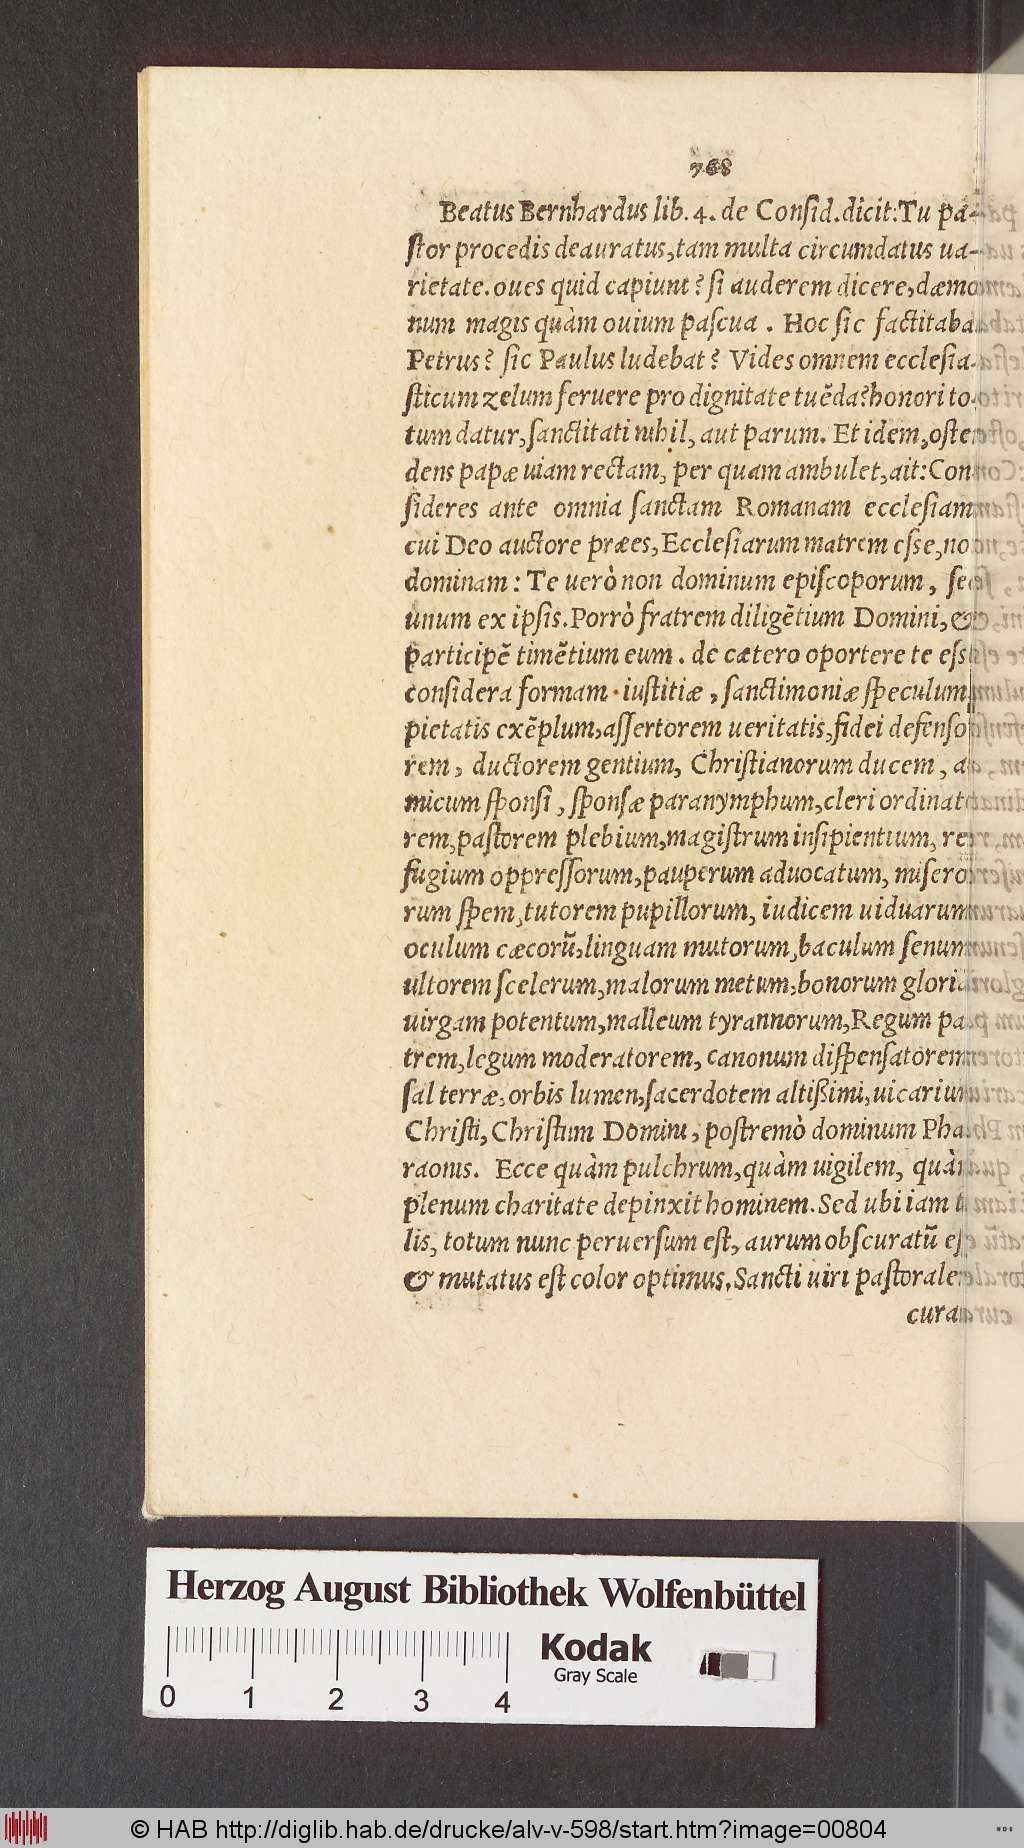 768
Beatus Bernhardus lib. 4. de Conſid. dicit: Tu pa-
ſtor procedis deauratus, tam multa circumdatus ua-
rietate. oues quid capiunt? ſi auderem dicere, dæmo
num magis quàm ouium paſcua. Hoc ſic factitaba
Petrus? ſic Paulus ludebat? Vides omnem eccleſia-
ſticum zelum feruere pro dignitate tuẽda? honori to-
tum datur, ſanctitati nihil, aut parum. Et idem, oſten
dens papæ uiam rectam, per quam ambulet, ait: Con
ſideres ante omnia ſanctam Romanam eccleſiam
cui Deo auctore præes, Eccleſiarum matrem eſse, no
dominam: Te uerò non dominum epiſcoporum, ſed
unum ex ipſis. Porrò fratrem diligẽtium Domini, &
participẽ timẽtium eum. de cætero oportere te eſs
conſidera formam iuſtitiæ, ſanctimoniæ ſpeculum,
pietatis exẽplum, aſſertorem ueritatis, fidei defenſo
rem, ductorem gentium, Chriſtianorum ducem, a
micum ſponſi, ſponſæ paranymphum, cleri ordinato
rem, paſtorem plebium, magiſtrum inſipientium, re
fugium oppreſſorum, pauperum aduocatum, miſero
rum ſpem, tutorem pupillorum, iudicem uiduarum
oculum cæcorũ, linguam mutorum, baculum ſenum
ultorem ſcelerum, malorum metum, bonorum gloria
uirgam potentum, malleum tyrannorum, Regum pa
trem, legum moderatorem, canonum diſpenſatorem
ſal terræ, orbis lumen, ſacerdotem altißimi, uicarium
Chriſti, Chriſtum Domini, poſtremò dominum Pha
raonis. Ecce quàm pulchrum, quàm uigilem, quàm
plenum charitate depinxit hominem. Sed ubi iam t
lis, totum nunc peruerſum eſt, aurum obſcuratũ eſ
& mutatus eſt color optimus. Sancti uiri paſtorale
curam
Herzog August Bibliothek Wolfenbüttel
Kodak
Gray Scale
0 1 2 3 4
© HAB http://diglib.hab.de/drucke/alv-v-598/start.htm?image=00804